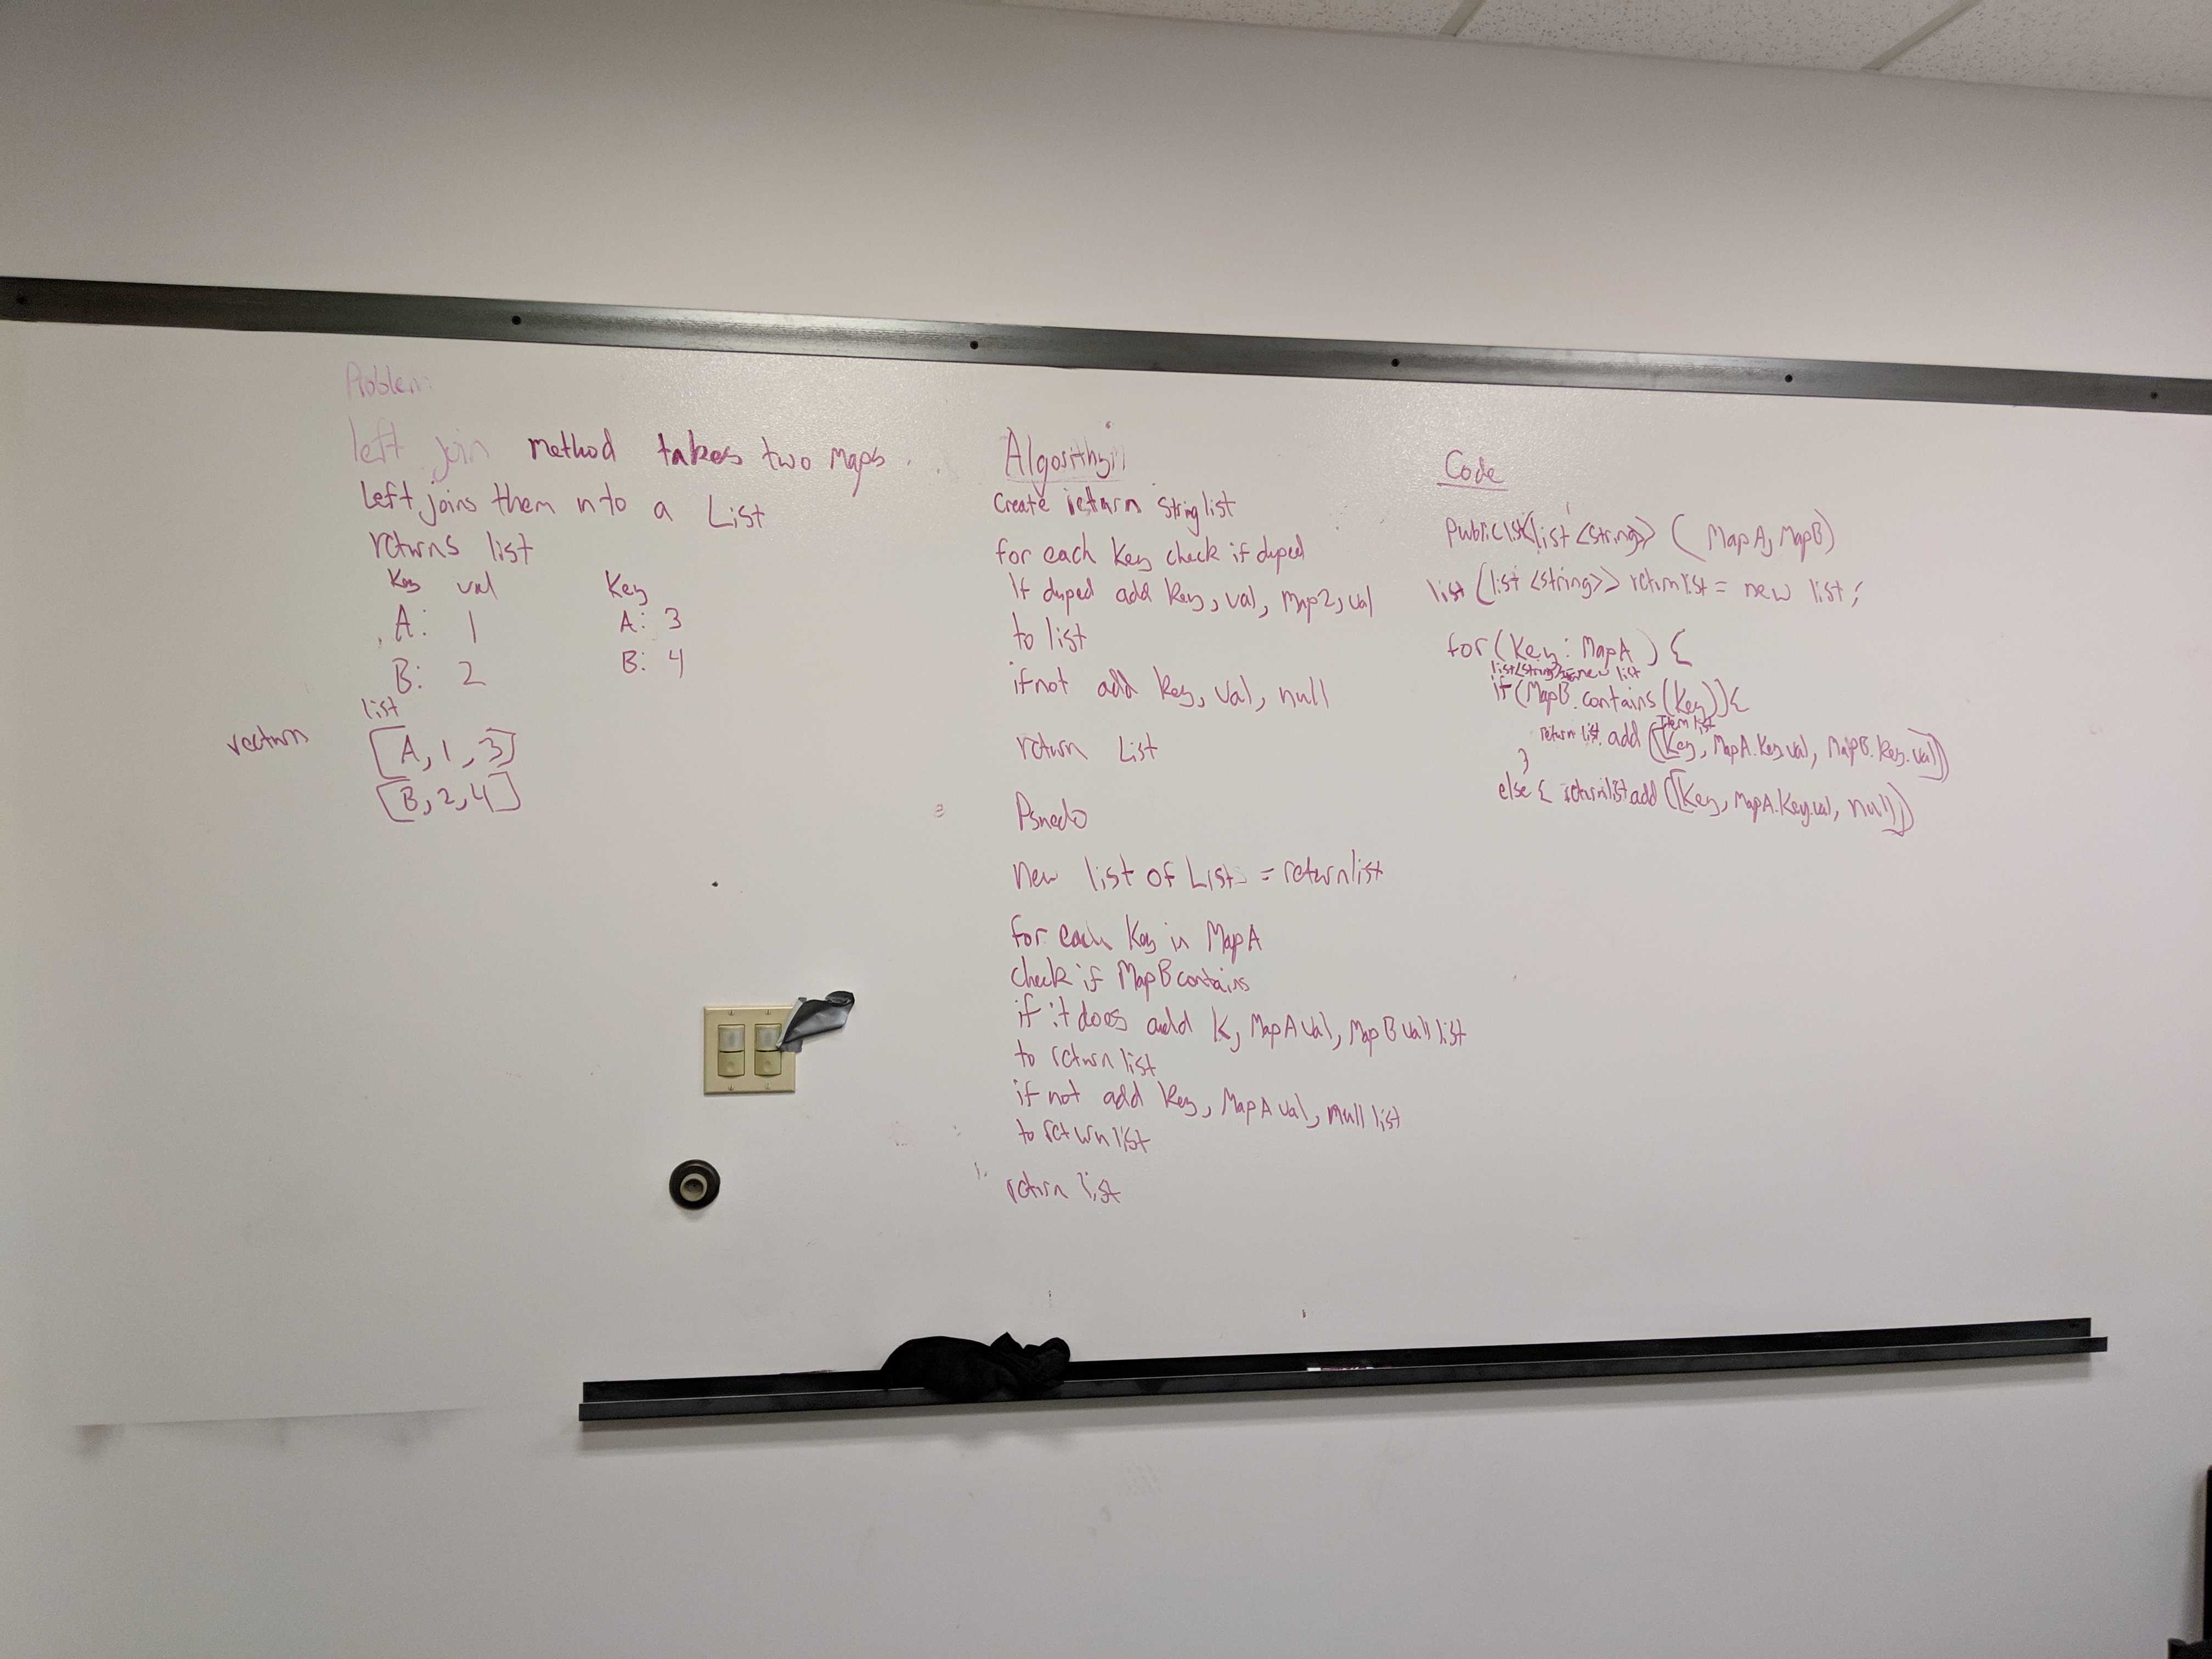 Problem:
left join method takes two maps.
Left joins them nto a List
returns list
Key val Key
A: 1 A: 3
B: 2 B: 4
list
return [A, 1, 3]
[B, 2, 4]
Algorithm
Create return string list
for each key check if duped
If duped add key, val, map2, val
to list
if not add key, val, null
return List
Psuedo
new list of Lists = returnlist
for each Key in MapA
check if MapB contains
if it does add K, MapA val, MapB val list
to return list
if not add key, MapA val, null list
to return list
return list
Code
public list<list<string>> (MapA, MapB)
list(list<string>> returnlist = new list;
for(Key: MapA) {
list<string> = new list
if(MapB.contains(Key)){
Item list
return list.add([Key, MapA.Key.val, MapB.Key.val])
}
else { returnlist add([Key, MapA.Key.val, null])